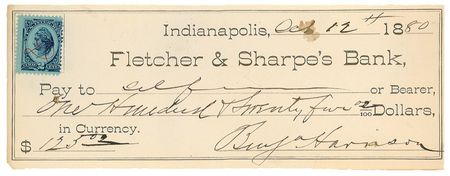 Indianapolis, Oct 12th 1880
Fletcher & Sharpe's Bank,
Pay to self or Bearer,
One Hundred & Twenty five 00/100 Dollars,
in Currency.
$ 125.00 Benj Harrison